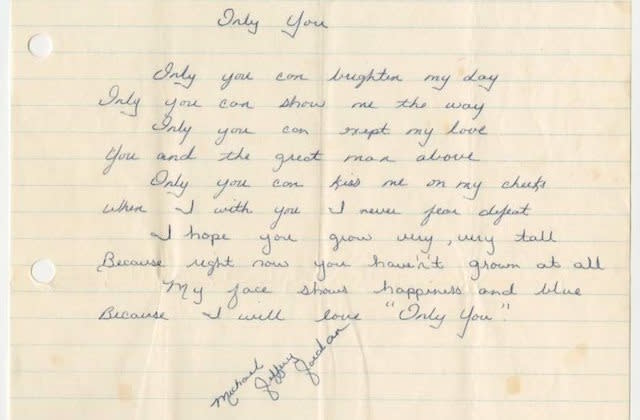 Only You
Only you can brighten my day
Only you can show me the way
Only you can exept my love
You and the great man above
Only you can kiss me on my cheeks
When I with you I never fear defeat
I hope you grow very, very tall
Because right now you haven't grown at all
My face shows happiness and blue
Because I will love "Only You".
Michael Jeffrey Jordan